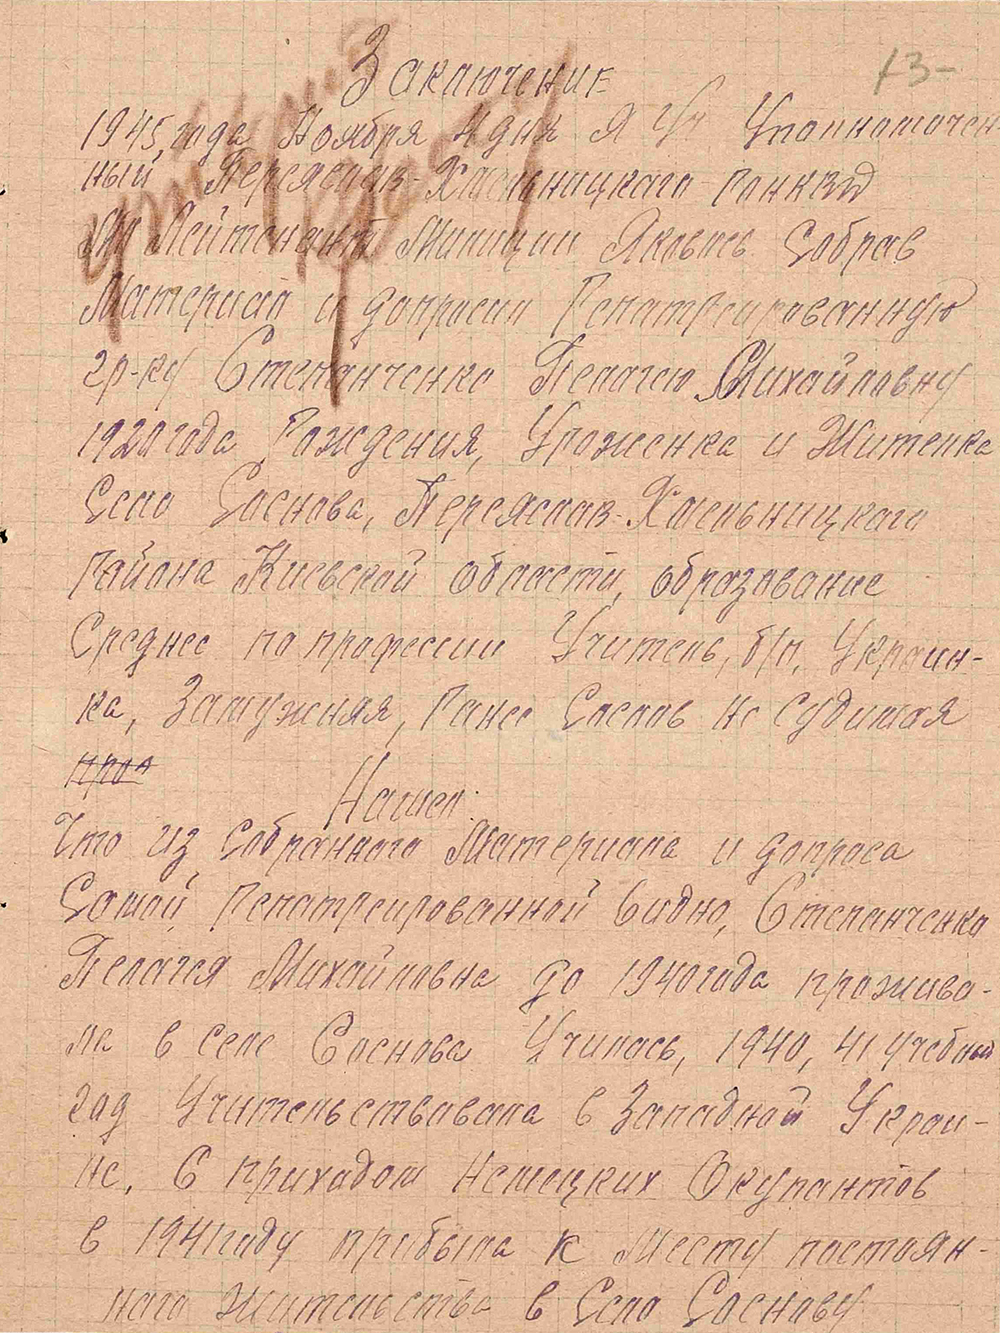 13-
Заключение
1945 года Ноября 4 дня Я Уч Уполномочен
ный Переяслав-Хмельницкаго РОНКВД
Лейтенант Милиции Собрав
Материал и допросил Репатреированную
гр-ку Степанченко Пелагею Михайловну
1920 года Рождения, Уроженка и Житенка
Село Соснова, Переяслав-Хмельницкаго
Района Киевской области, образование
Среднее по професии Учитель, б/п, Украин-
ка, Замужняя, Ранее Слслов не судимая
Нашел:
Что из Собранного Материала и допроса
Самой Репатреированной видно, Степанченко
Пелагея Михайловна до 1940 года прожива-
ла в селе Соснова Училась, 1940, 41 учебный
год Учительствовала в Западной Украи-
не. С приходом Немецких Окупантов
в 1941 году прибыла к Месту постоян-
ного Жительства в Село Соснову